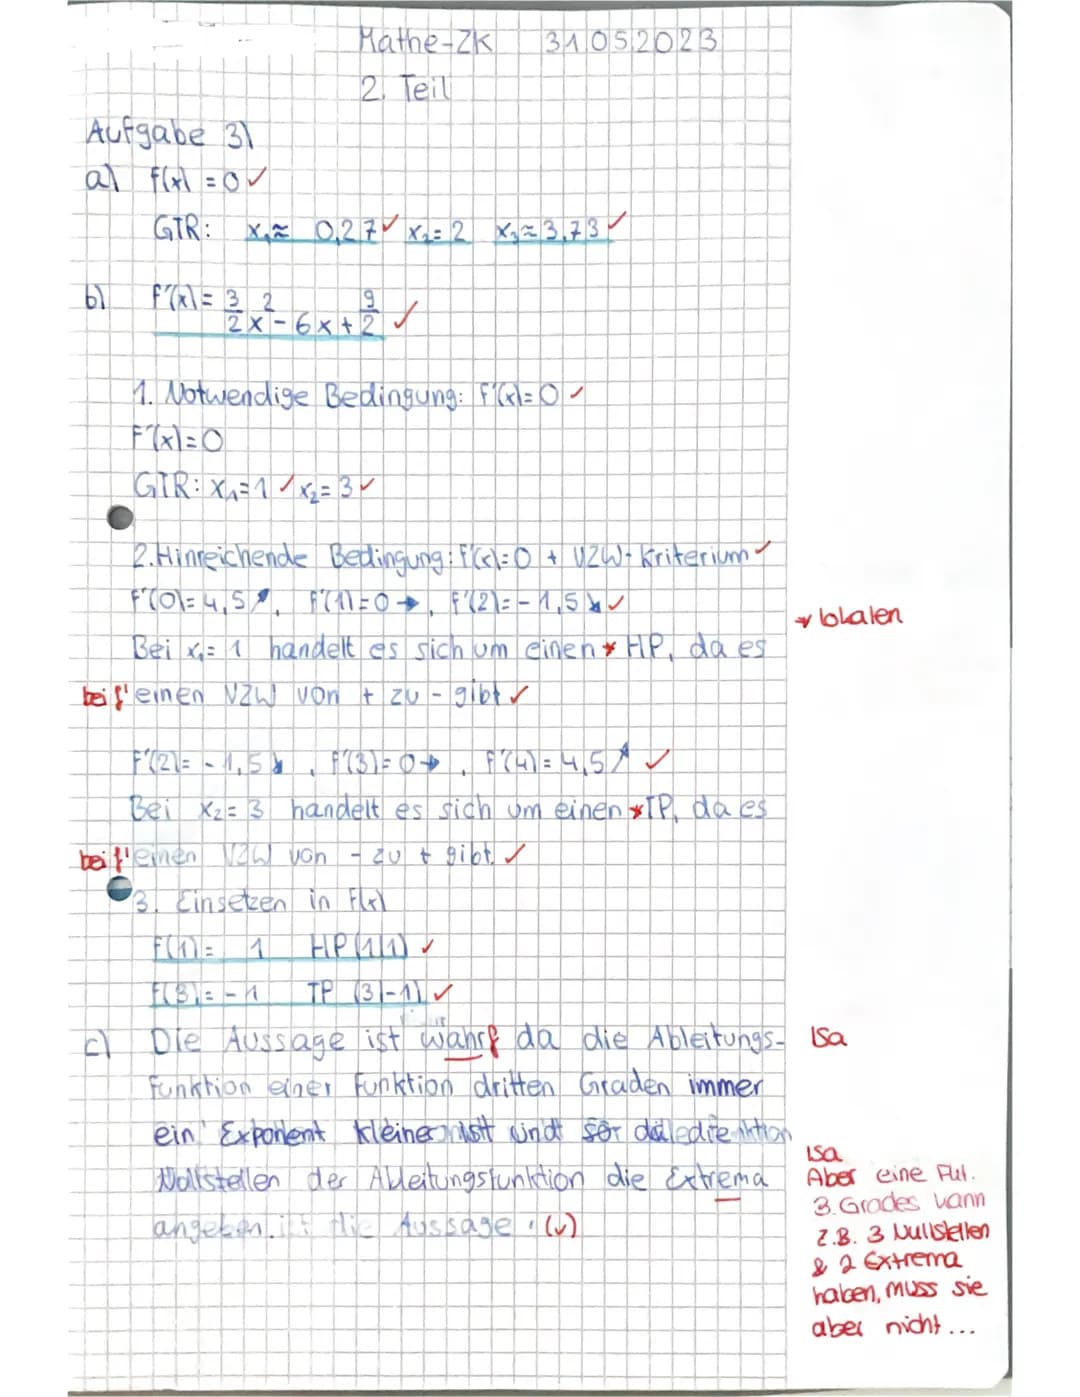 Mathe-ZK 31.05.2023
2. Teil
Aufgabe 3)
a) f(x) = 0 ✓
GTR: x₁≈ 0,27 ✓ x₂= 2 x₃≈ 3,73 ✓
b) f'(x) = 3/2 x² - 6x + 9/2 ✓
1. Notwendige Bedingung: f'(x)=0 ✓
f'(x)=0
GTR: x₁=1 ✓ x₂=3 ✓
2. Hinreichende Bedingung: f'(x)=0 + VZW-Kriterium ✓
f'(0)=4,5↗, f'(1)=0→, f'(2)=-1,5↘ ✓
* lokalen
Bei x₁= 1 handelt es sich um einen * HP, da es
bei f' einen VZW von + zu - gibt ✓
f'(2)= -1,5↘, f'(3)=0→, f'(4)=4,5↗ ✓
Bei x₂= 3 handelt es sich um einen *TP, da es
bei f' einen VZW von - zu + gibt. ✓
3. Einsetzen in f(x)
f(1)= 1 HP(1|1) ✓
f(3)= -1 TP (3|-1) ✓
c) Die Aussage ist wahr, da die Ableitungs-
ISa
funktion einer Funktion dritten Graden immer
ein Exponent kleiner ist und
Nullstellen der Ableitungsfunktion die Extrema
angeben. die Aussage (✓)
ISa
Aber eine Fkt.
3. Grades kann
z.B. 3 Nullstellen
& 2 Extrema
haben, muss sie
aber nicht...